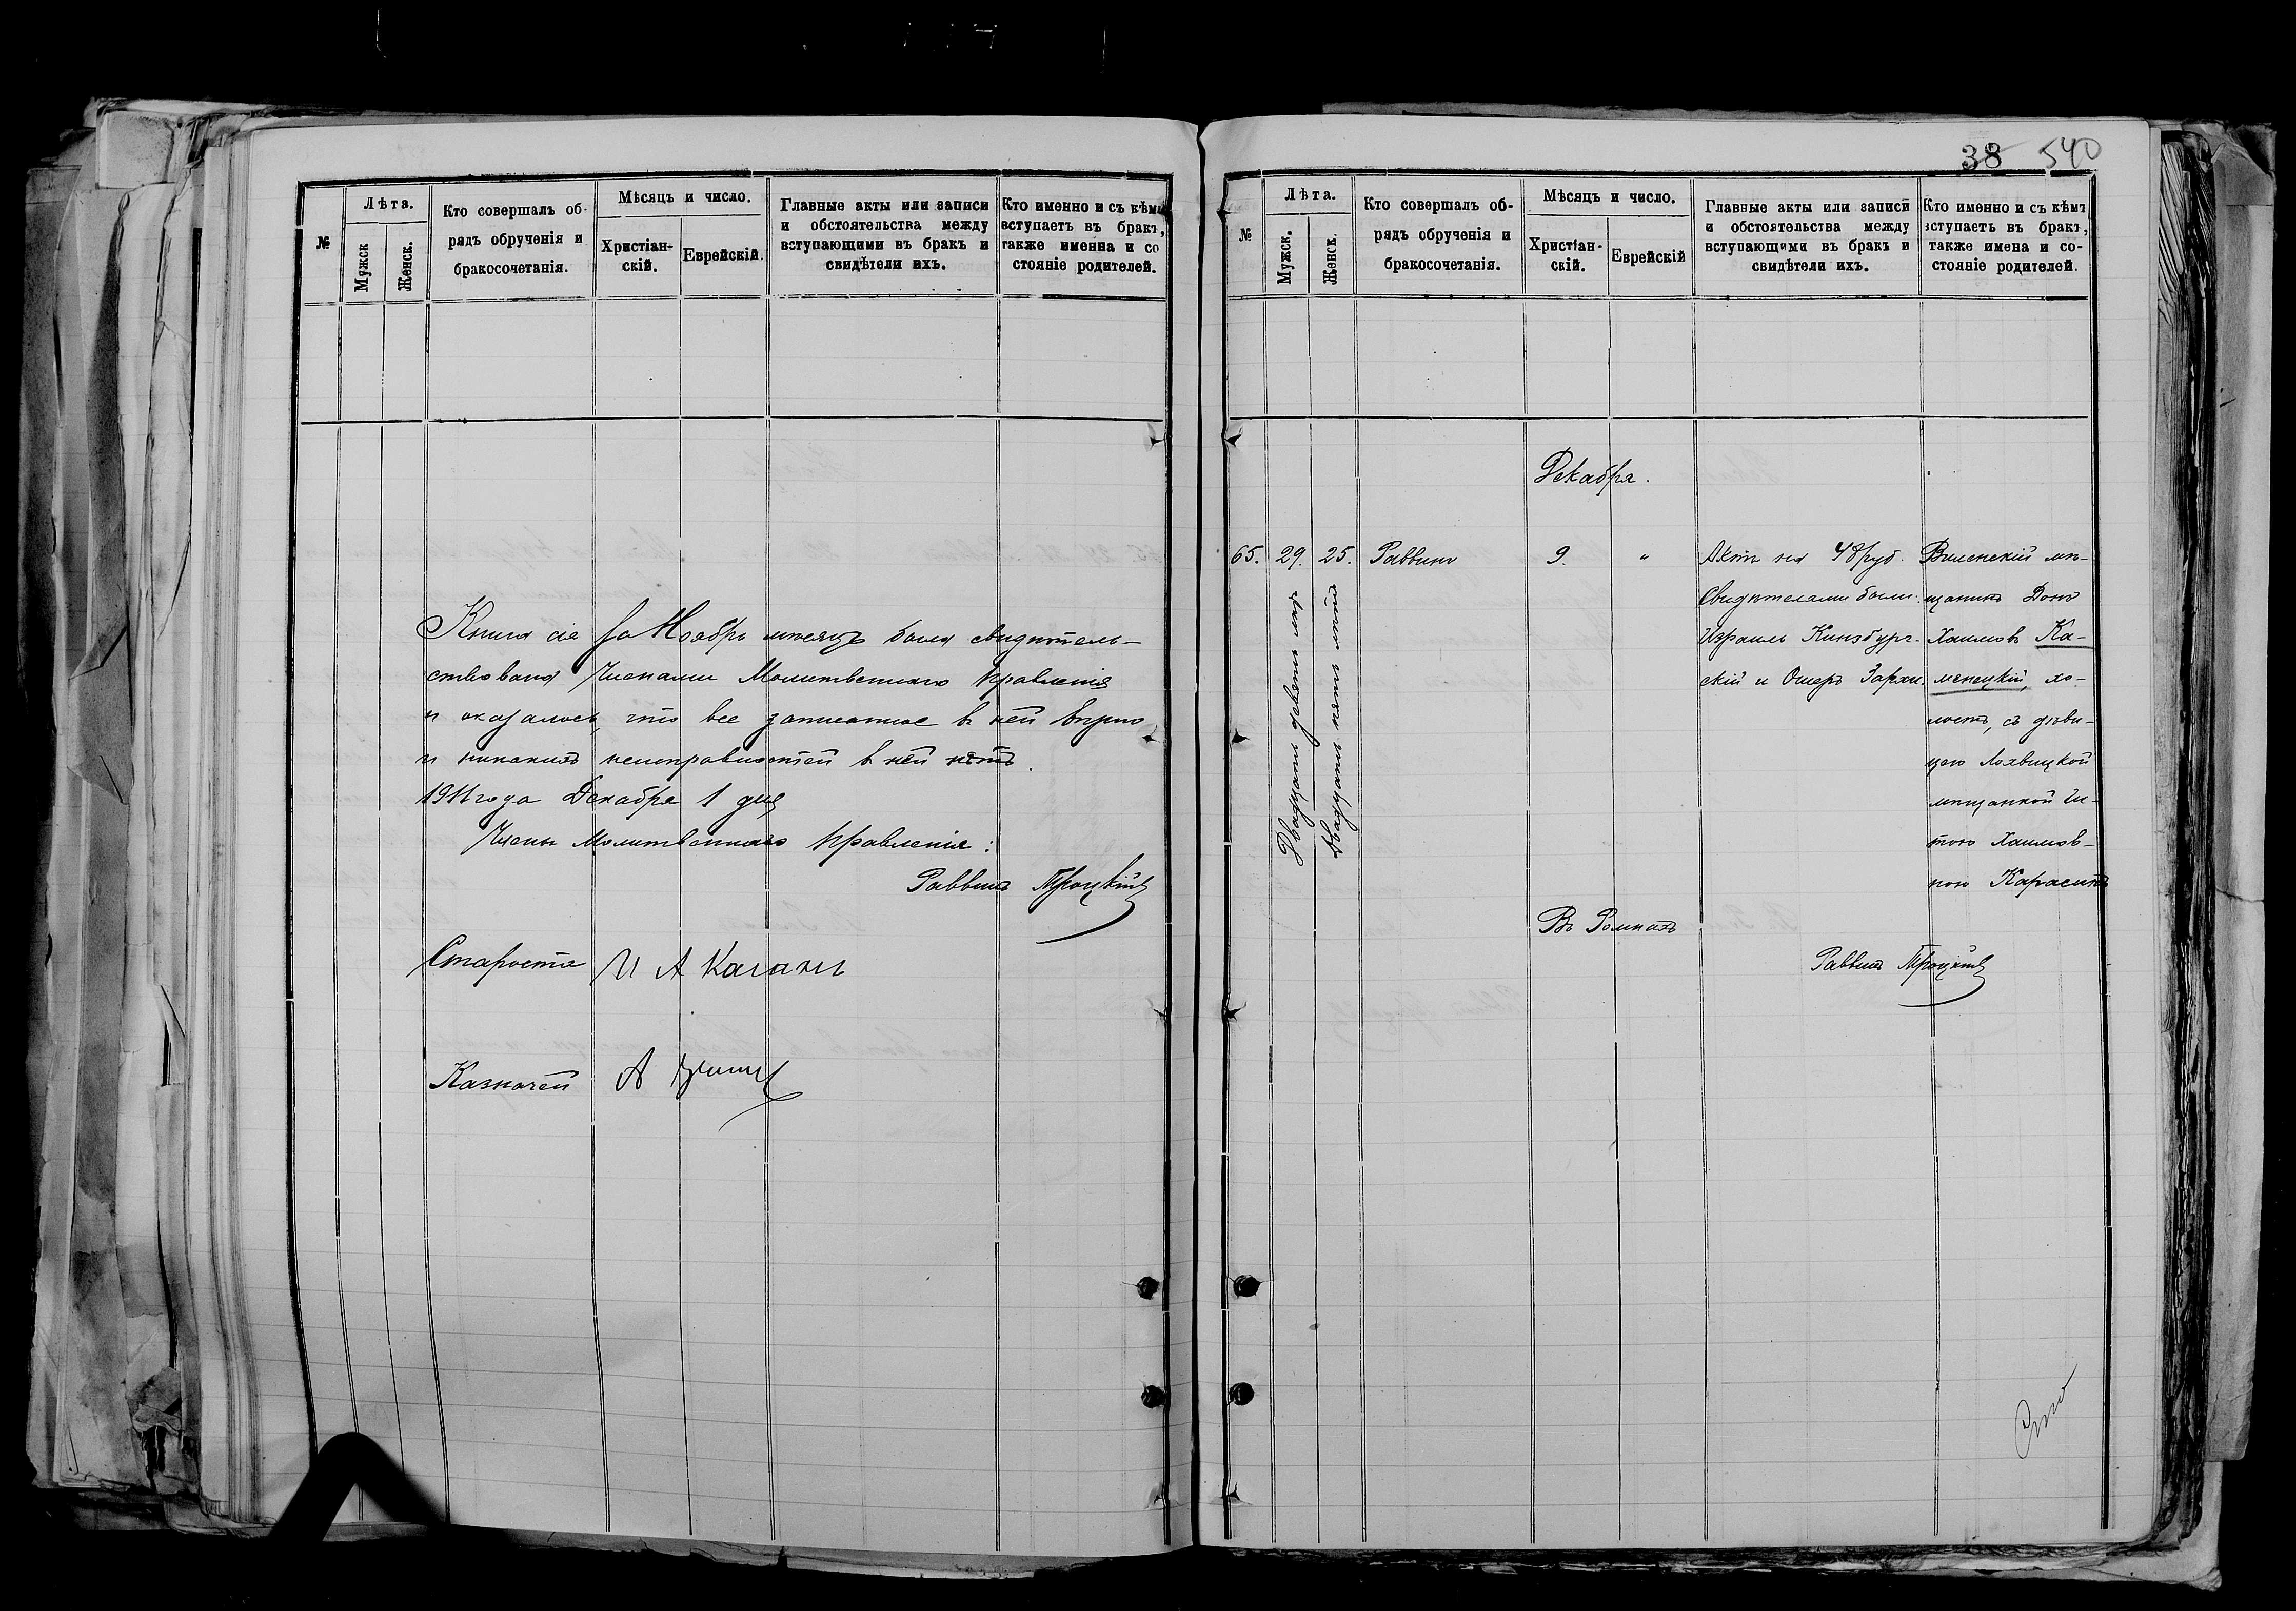 №
Лѣта.
Мужск
Женск.
Кто совершалъ об-
рядъ обрученія и
бракосочетанія.
Мѣсяцъ и число.
Христіан-
скій.
Еврейскій.
Главные акты или записи
и обстоятельства между
вступающими въ бракъ и
свидѣтели ихъ.
Кто именно и съ кѣмъ
вступаетъ въ бракъ,
также именна и со
стояніе родителей.
Книга сія за Ноябрь мѣсяцъ была свидѣтель-
ствована Членами Молитвеннаго Правленія
и оказалось, что все записанное въ ней вѣрно
и никакихъ неисправностей въ ней нѣтъ.
1911 года Декабря 1 дня
Члены Молитвеннаго Правленія:
Раввинъ Троцкій
Староста И А Каганъ
Казначей А
38 540
№
Лѣта.
Мужск.
Женск.
Кто совершалъ об-
рядъ обрученія и
бракосочетанія.
Мѣсяцъ и число.
Христіан-
скій.
Еврейскій
Главные акты или записи
и обстоятельства между
вступающими въ бракъ и
свидѣтели ихъ.
Кто именно и съ кѣмъ
вступаетъ въ бракъ,
также имена и со-
стояніе родителей.
Декабря.
65.
29.
Двадцать девять лѣтъ
25.
Двадцать пять лѣтъ
Раввинъ
9.
"
Актъ на 48 руб.
Свидѣтелями были:
Израиль Кинзбург-
скій и Ошеръ Зархи.
Виленскій мѣ-
щанинъ Донъ
Хаимовъ Ка-
менецкій, хо-
лостъ, съ дѣви-
цею Лохвицкой
мѣщанкой Ги-
тою Хаимов-
ною Карасикъ
Въ Ромнахъ
Раввинъ Троцкій